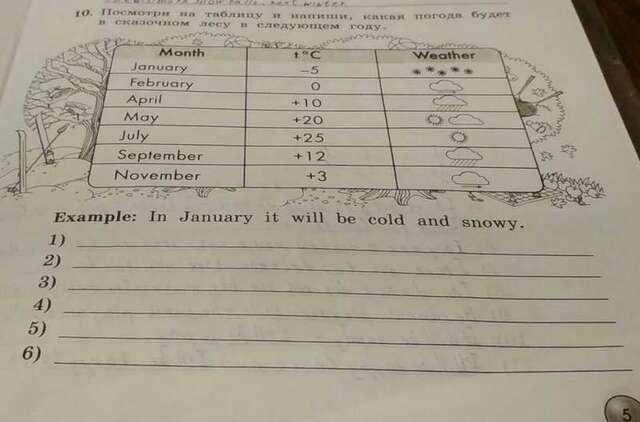 10. Посмотри на таблицу и напиши, какая погода будет
в сказочном лесу в следующем году.
Month t°C Weather
January –5
February 0
April +10
May +20
July +25
September +12
November +3
Example: In January it will be cold and snowy.
1)
2)
3)
4)
5)
6)
5